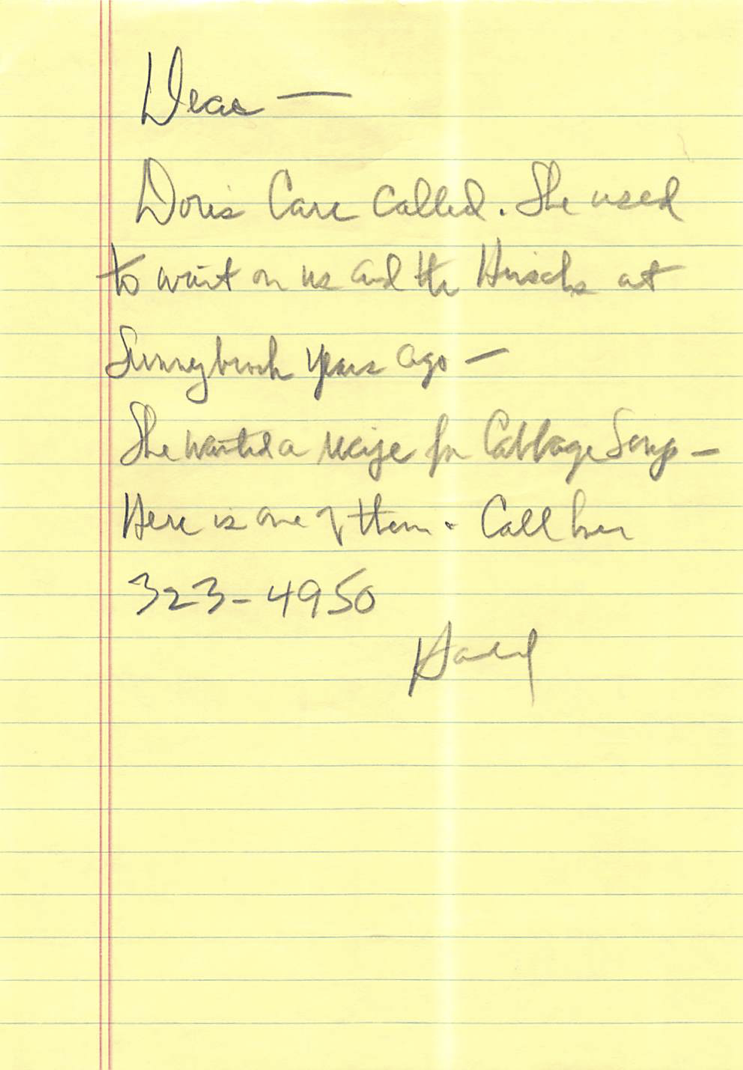 Dear —
Doris Carr called. She used
to wait on us and the Hirschs at
Sunnybrook years ago —
She wanted a recipe for Cabbage Soup —
Here is one of them. Call her
323-4950